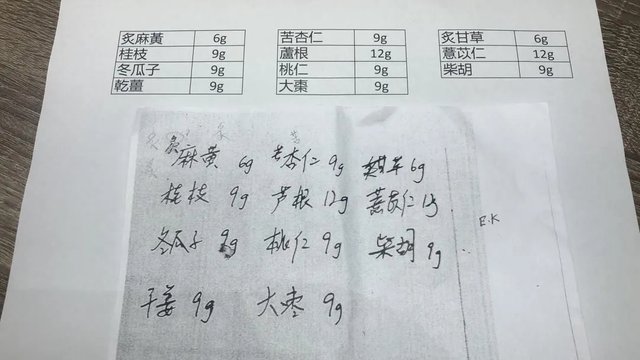 炙麻黃 6g 苦杏仁 9g 炙甘草 6g
桂枝 9g 蘆根 12g 薏苡仁 12g
冬瓜子 9g 桃仁 9g 柴胡 9g
乾薑 9g 大棗 9g
炙麻黄 6g 苦杏仁 9g 炙甘草 6g
桂枝 9g 芦根 12g 薏苡仁 12g
冬瓜子 9g 桃仁 9g 柴胡 9g
干姜 9g 大枣 9g